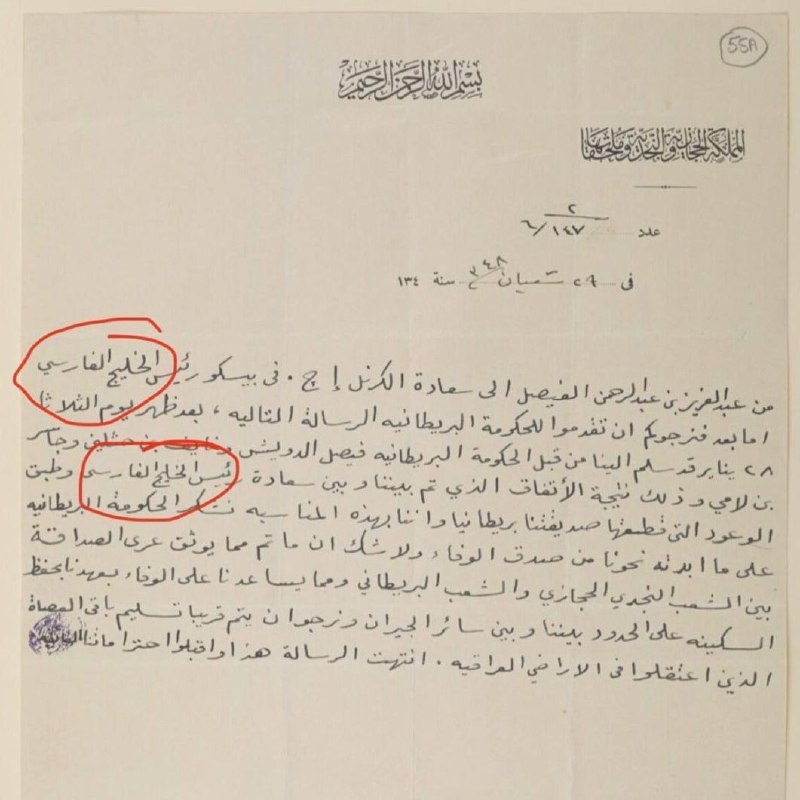 55A
بسم الله الرحمن الرحيم
المملكة الحجازية والنجدية وملحقاتها
عدد ٢
٦/١٤٧
في ٢٩ شعبان ٣٤٨ سنة ١٣٤
من عبد العزيز بن عبد الرحمن الفيصل الى سعادة الكرنل إ ج . في بيسكو رئيس الخليج الفارسي
اما بعد فنرجوكم ان تقدموا للحكومة البريطانيه الرسالة التاليه ، بعد ظهر يوم الثلاثا
٢٨ يناير قد سلم الينا من قبل الحكومة البريطانيه فيصل الدويش ونايف بن حثلين وجاسر
بن لامي وذلك نتيجة الأتفاق الذي تم بيننا وبين سعادة رئيس الخليج الفارسي وطبق
الوعود التي قطعتها صديقتنا بريطانيا واننا بهذه المناسبه نشكر الحكومة البريطانيه
على ما ابدته نحونا من صدق الوفاء ولا شك ان ما تم مما يوثق عرى الصداقة
بين الشعب النجدي الحجازي والشعب البريطاني ومما يساعدنا على الوفاء بعهدنا بحفظ
السكينه على الحدود بيننا وبين سائر الجيران ونرجو ان يتم قريبا تسليم باقي العصاة
الذين اعتقلوا في الاراضي العراقيه . انتهت الرسالة هذا واقبلوا احتراماتنا